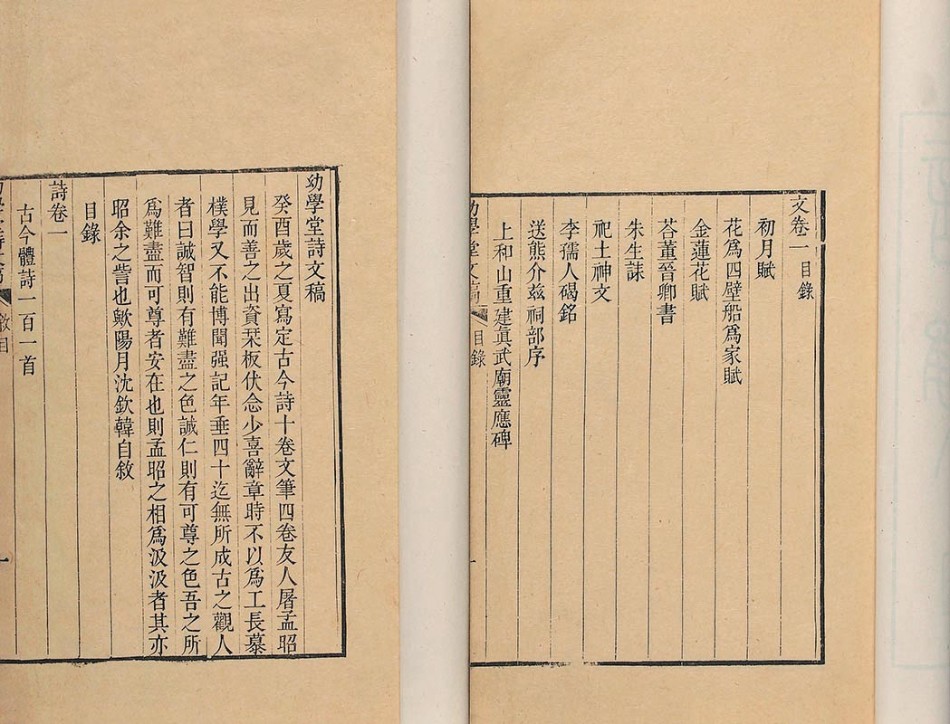 文卷一 目錄
初月賦
花爲四壁船爲家賦
金蓮花賦
荅董晉卿書
朱生誄
祀土神文
李孺人碣銘
送熊介兹祠部序
上和山重建眞武廟靈應碑
目錄
幼學堂詩文稿
癸酉歲之夏寫定古今詩十卷文筆四卷友人屠孟昭
見而善之出資栞板伏念少喜辭章時不以爲工長慕
樸學又不能博聞强記年垂四十迄無所成古之觀人
者曰誠智則有難盡之色誠仁則有可尊之色吾之所
爲難盡而可尊者安在也則孟昭之相爲汲汲者其亦
昭余之訾也歟陽月沈欽韓自敘
目錄
詩卷一
古今體詩一百一首